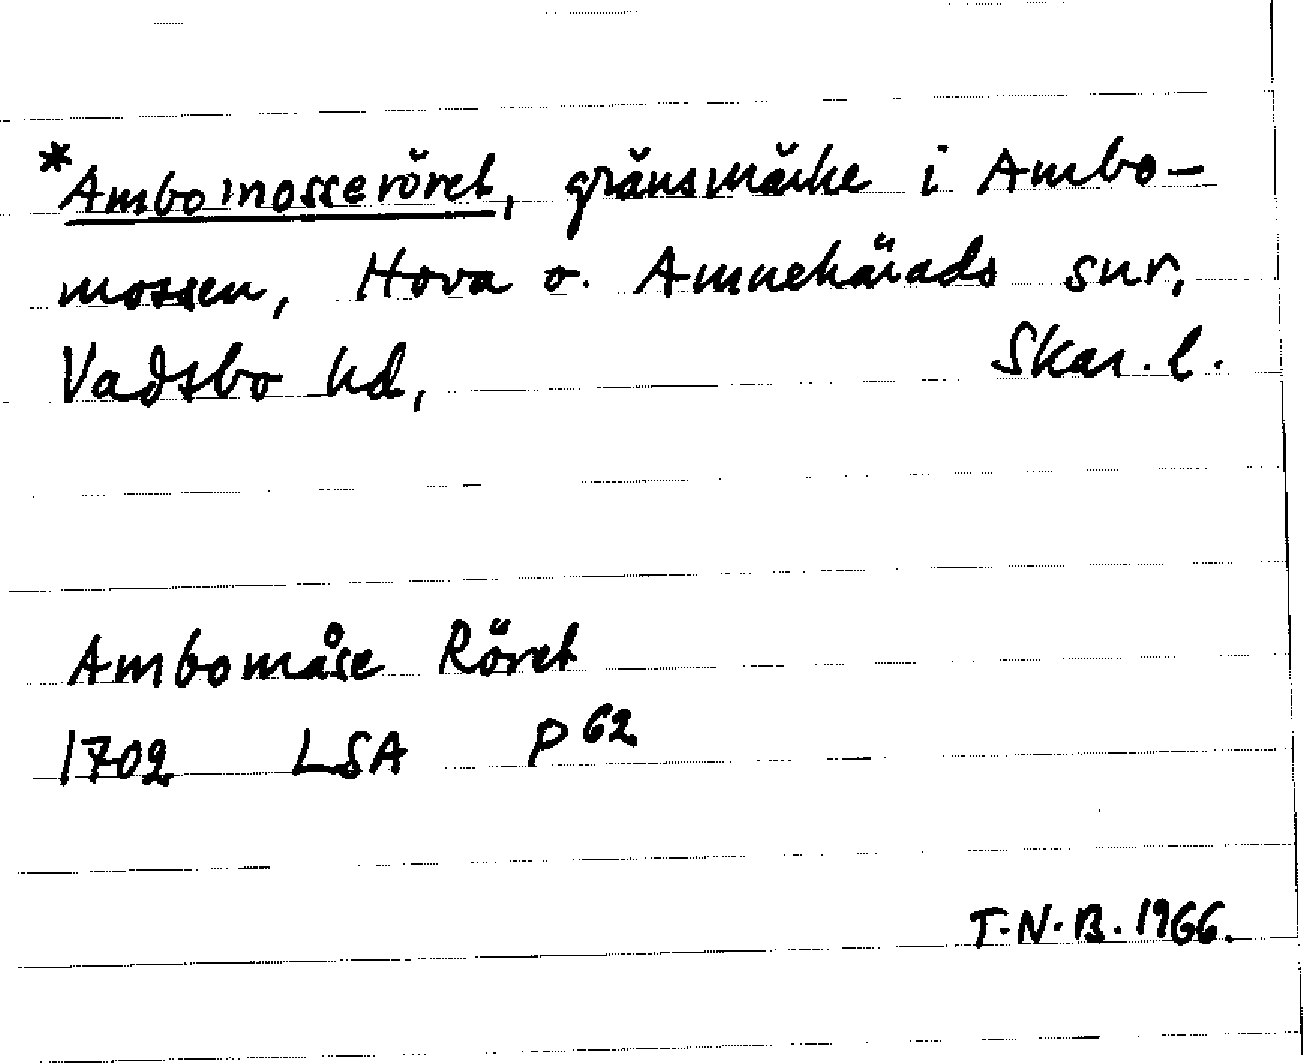 *Ambomosseröret, gränsmärke i Ambo-
mossen, Hova o. Amnehärads snr,
Vadsbo hd, Skar. l.
Ambomåse Röret
1702 LSA P 62
T.N.B. 1966.